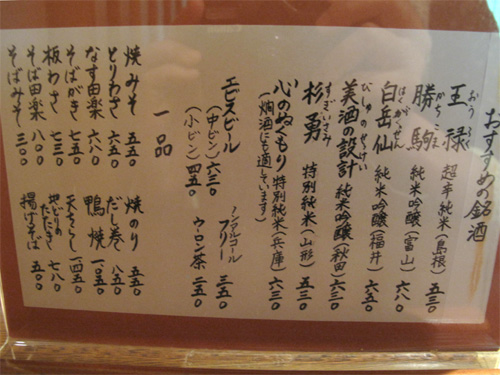 おすすめの銘酒
王禄 おうろく 超辛純米(島根) 五三〇
勝駒 かちこま 純米吟醸(富山) 六八〇
白岳仙 はくがくせん 純米吟醸(福井) 六五〇
美酒の設計 びしゅのせっけい 純米吟醸(秋田) 六三〇
杉勇 すぎいさみ 特別純米(山形) 五三〇
心のぬくもり 特別純米(兵庫) 六三〇
(燗酒にも適しています)
エビスビール
(中ビン) 六三〇
(小ビン) 四五〇
ノンアルコール
フリー 三五〇
ウーロン茶 二五〇
一品
焼みそ 五五〇
とりわさ 六五〇
なす田楽 六八〇
そばがき 七五〇
板わさ 七三〇
そば田楽 八〇〇
そばみそ 三〇〇
焼のり 五五〇
だし巻き 八五〇
鴨焼 一〇五〇
天ざらし 一四五〇
地どりのたたき 七八〇
揚げそば 五〇〇